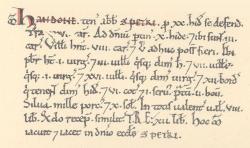 Handone ten abb S PETRI. p xx. hid se defend.
Tra. xvi. car. Ad dniu ptin. x. hidę. 7 ibi sunt. iii.
car. Uilli hnt. viii. car. 7 v. adhuc poss fieri. Ibi
pbr ht. i. uirg. 7 iii. uilli qsq; dim hid. 7 vii. uilli
qsq; i. uirg. 7 xvi. uilli qsq; dim uirg. 7 xii. bord
q tenent dim hid. 7 vi. cot. 7 i. seru. ptu. ii. bou.
Silua mille porc. 7 x. sol. In totis ualent ualet. viii.
lib. Qdo recep. similit. T.R.E. xii. lib. Hoc M
iacuit 7 iacet in dnio eccle S PETRI.